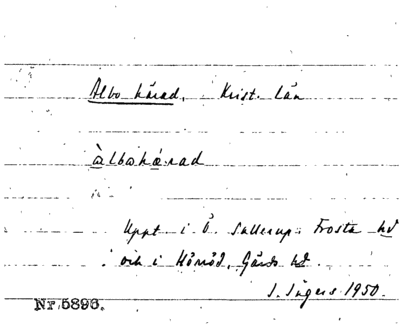 Albo härad, Krist. län
àlbohǽrad
Uppt i Ö. Sallerup, Frosta hd
och i Hörröd, Gärds hd.
I. Ingers 1950.
Nr. 5896.